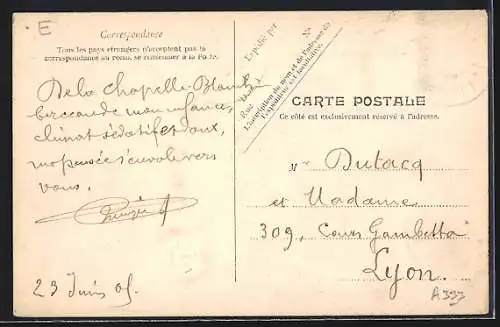 E
Correspondance
Tous les pays étrangers n'acceptent pas la
correspondance au recto, se renseigner à la Poste.
De la Chapelle-Blanche
berceau de mon enfance,
climat sédatif et doux,
ma pensée s'envole vers
vous.
23 Juin 05.
Expédié par
N°
Rue
L'inscription du nom et de l'adresse de
l'expéditeur est facultative.
CARTE POSTALE
Ce côté est exclusivement réservé à l'adresse.
Mr Dutacq
et Madame
309, Cours Gambetta
Lyon.
A393